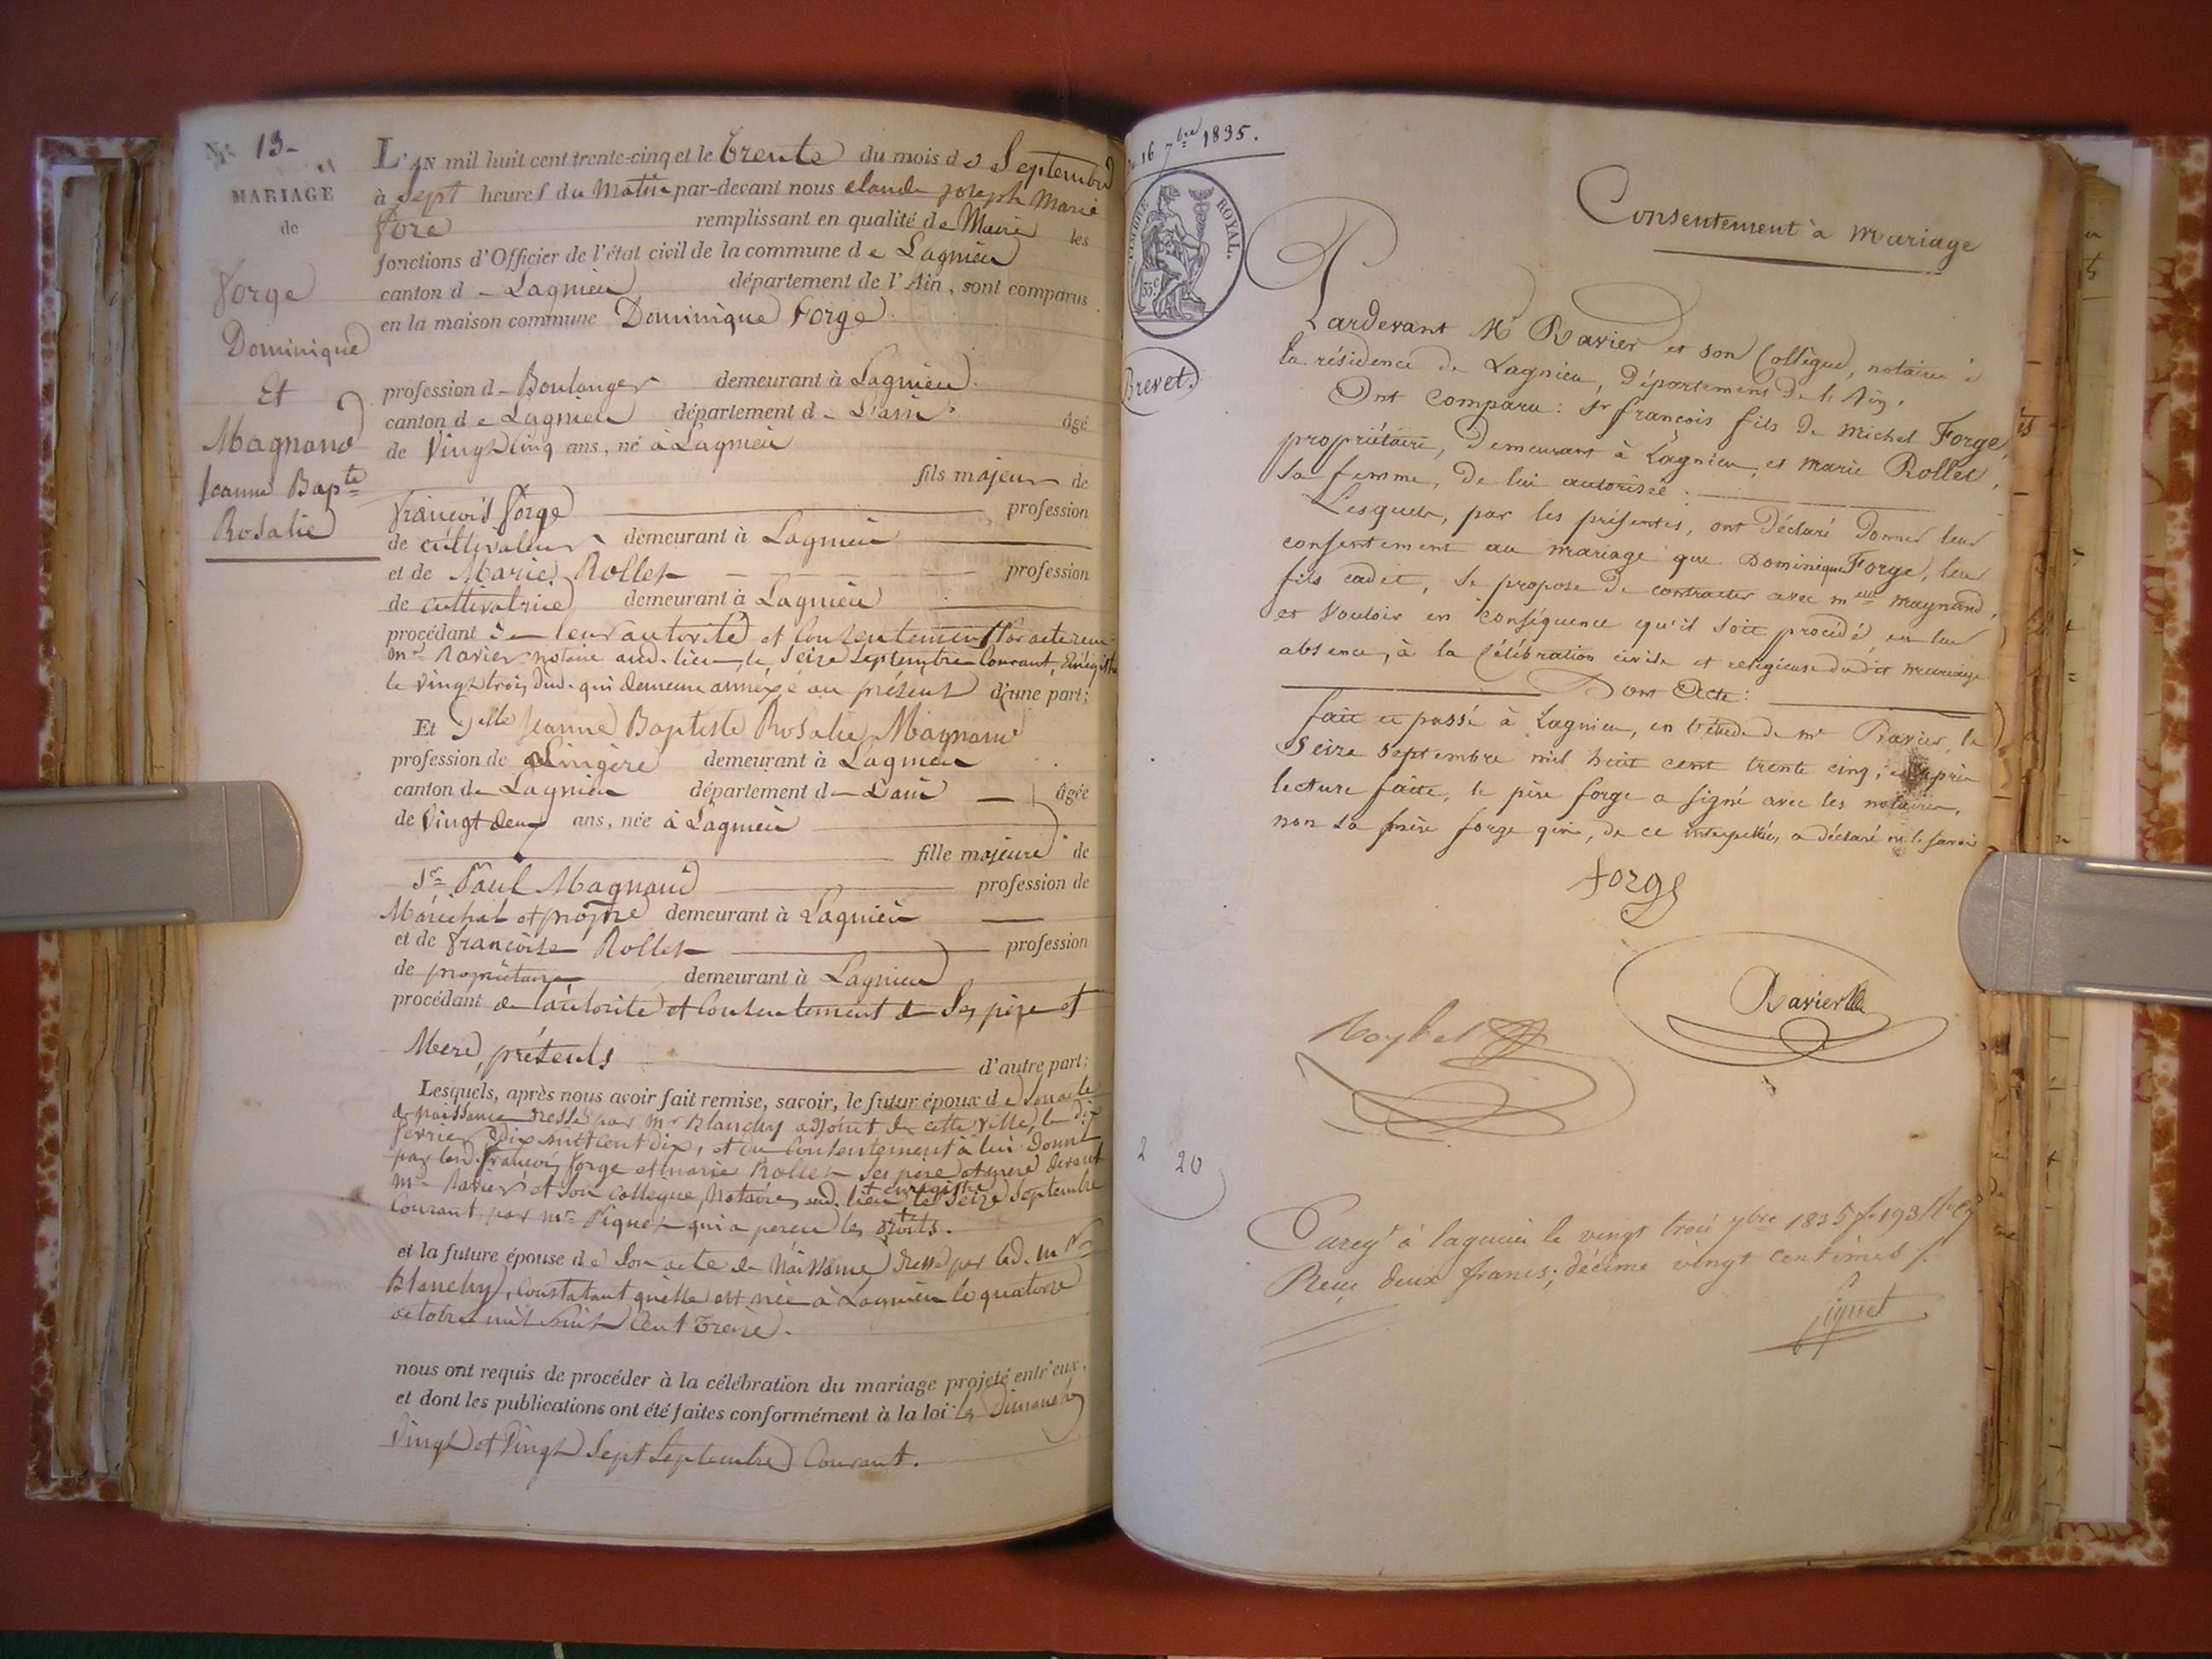 N.° 13-
MARIAGE
de
Forge
Dominique
Et
Magnand
Jeanne Bap.te
Rosalie
L'AN mil huit cent trente-cinq et le trente du mois de Septembre
à Sept heures du Matin par-devant nous Claude joseph Marie
remplissant en qualité de Maire les
fonctions d'Officier de l'état civil de la commune de Lagnieu
canton d - Lagnieu département de l'Ain, sont comparus
en la maison commune Dominique Forge
profession d - Boulanger demeurant à Lagnieu.
canton de Lagnieu département d - L'ain âgé
de Vingt Cinq ans, né à Lagnieu
fils majeur de
françois forge profession
de cultivateur demeurant à Lagnieu
et de Marie Rollet profession
de cultivatrice demeurant à Lagnieu
procédant de leur autorité et Consentement par acte reçu
m.e Ravier notaire aud. lieu, le Seize Septembre Courant, Enregistré
le vingt trois dud. qui demeure annexé au présent d'une part;
Et D.elle Jeanne Baptiste Rosalie Magnand
profession de Lingère demeurant à Lagnieu
canton de Lagnieu département d - L'ain âgée
de Vingt deux ans, née à Lagnieu
fille majeure de
S.r Paul Magnand profession de
Maréchal et prop.re demeurant à Lagnieu
et de françoise Rollet profession
de propriétaire demeurant à Lagnieu
procédant de l'autorité et Consentement de Ses père et
Mere, présents d'autre part;
Lesquels, après nous avoir fait remise, savoir, le futur époux de Son acte
de naissance dressé par m.r Blanchy adjoint de cette ville, le dix
fevrier Dix huit Cent dix, et du Consentement à lui donné
par led. françois forge et marie Rollet Ses pere et mere devant
m.e Ravier et Son Collegue, Notaires aud. lieu le Seize Septembre
+ enregistré
Courant, par m.r Piquet qui a perçu les droits.
et la future épouse de Son acte de Naissance dressé par led. m.r
Blanchy, Constatant quelle est née à Lagnieu le quatorze
octobre mil huit Cent Treize.
nous ont requis de procéder à la célébration du mariage projeté entr'eux,
et dont les publications ont été faites conformément à la loi les Dimanches
Vingt et Vingt Sept Septembre Courant.
16 7.bre 1835.
TIMBRE ROYAL.
35.c
Brevet.
Consentement à Mariage
Pardevant M.e Ravier et son Collègue, notaires à
la résidence de Lagnieu, Département de l'Ain,
Ont comparu: Sr françois fils de Michel Forge,
propriétaire, demeurant à Lagnieu, et Marie Rollet,
Sa femme, de lui autorisée.
Lesquels, par les présentes, ont déclaré donner leur
consentement au mariage que Dominique Forge, leur
fils cadet, se propose de contracter avec m.elle Magnand,
et Vouloir en conséquence qu'il soit procédé, en leur
absence, à la Célébration civile et religieuse dudit mariage
Dont Acte:
fait et passé à Lagnieu, en l'étude de m.e Ravier, le
Seize Septembre mil huit cent trente cinq; et après
lecture faite, le père forge a signé avec les notaires,
non la mère forge qui, de ce interpellée, a déclaré ne le savoir
forge
Ravier
2 20
Enreg.t à lagnieu le vingt trois 7bre 1835 f.o 193
Reçu deux francs; décime vingt centimes /.
Piquet